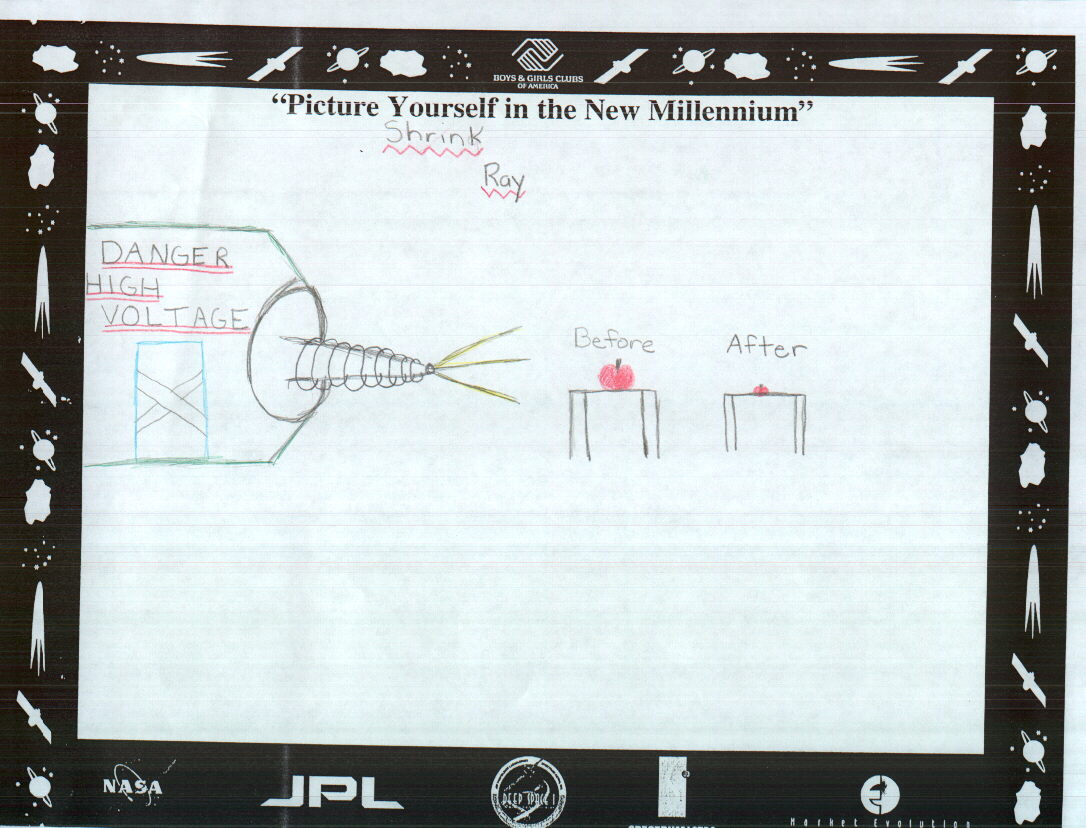 BOYS & GIRLS CLUBS
OF AMERICA
“Picture Yourself in the New Millennium”
Shrink
Ray
DANGER
HIGH
VOLTAGE
Before
After
NASA
JPL
DEEP SPACE 1
Market Evolution